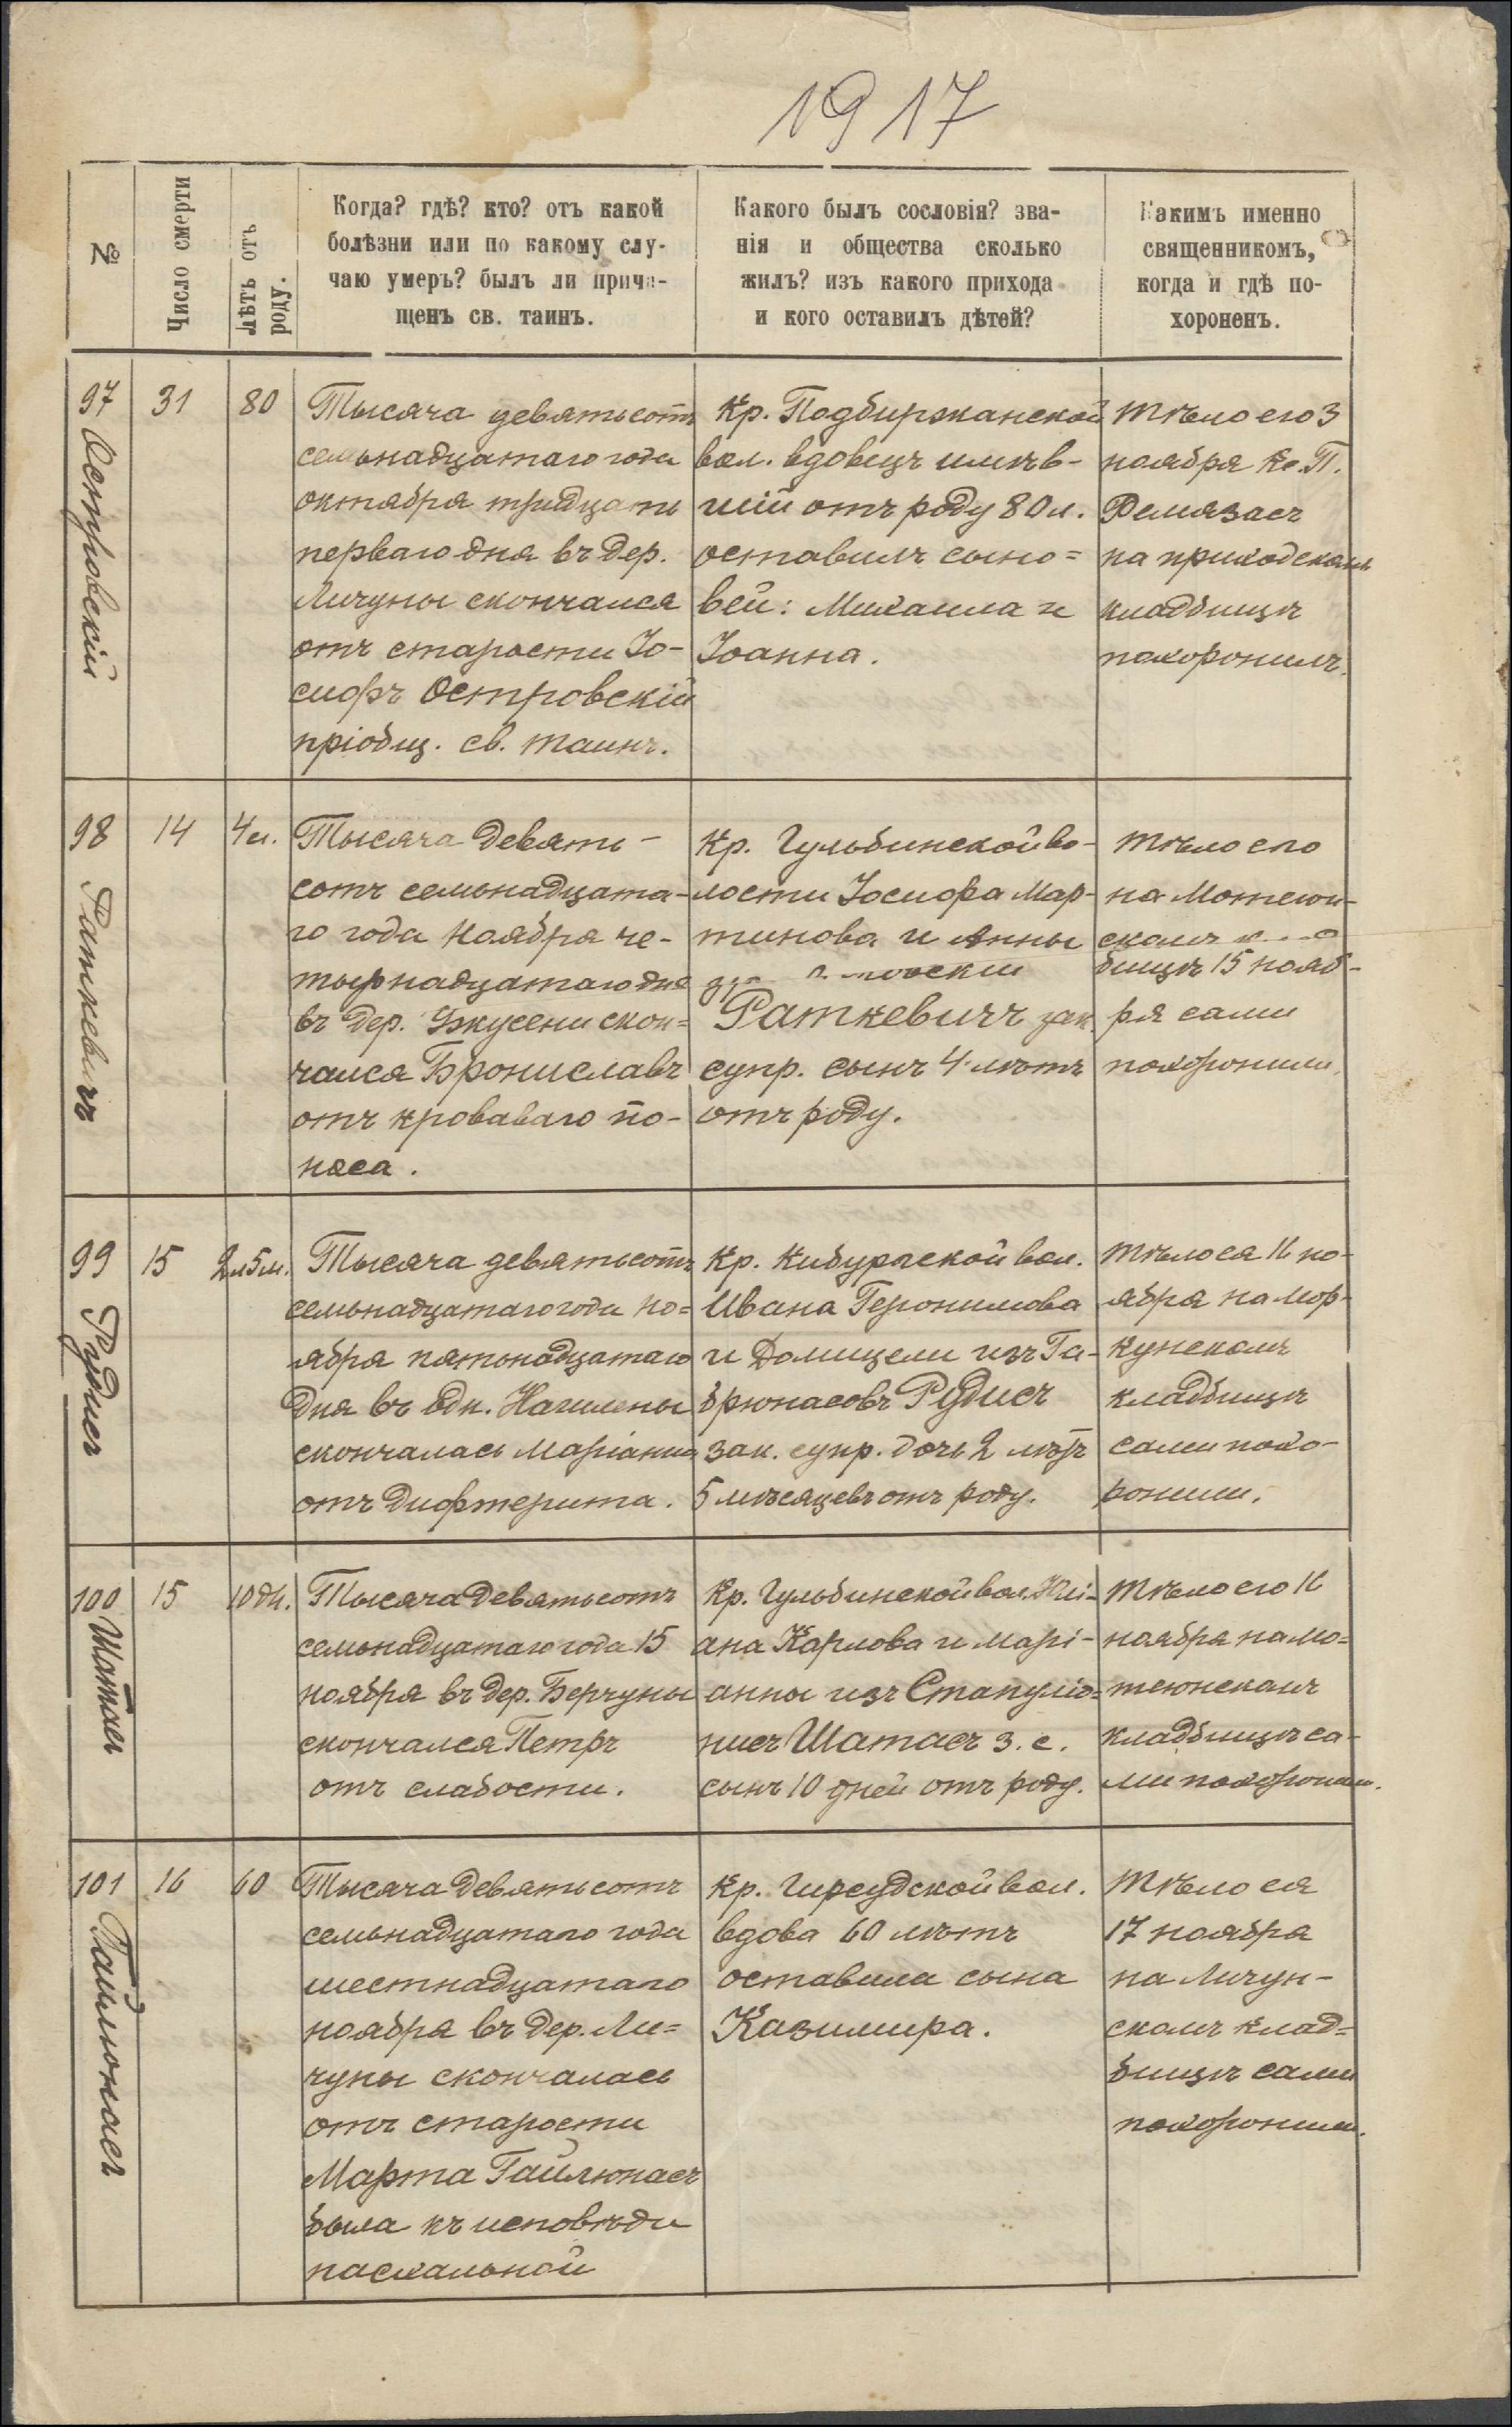 1917
№
Число смерти
лѣтъ отъ
роду.
Когда? гдѣ? кто? отъ какой
болѣзни или по какому слу-
чаю умеръ? былъ ли прича-
щенъ св. таинъ.
Какого былъ сословія? зва-
нія и общества сколько
жилъ? изъ какого прихода
и кого оставилъ дѣтей?
Какимъ именно
священникомъ,
когда и гдѣ по-
хороненъ.
97
Островскій
31
80
Тысяча девятьсотъ
семьнадцатаго года
октября тридцать
перваго дня въ дер.
Личуны скончался
отъ старости Іо-
сифъ Островскій
пріобщ. св. таинъ.
Кр. Подбиржанской
вол. вдовецъ имѣв-
шій отъ роду 80 л.
оставилъ сыно=
вей: Михаила и
Іоанна.
тѣло его 3
ноября Кс. П.
Ремязасъ
на приходскомъ
кладбищѣ
похоронилъ.
98
Раткевичъ
14
4 л.
Тысяча девять-
сотъ семьнадцата-
го года Ноября че-
тырнадцатаго дня
въ дер. скон=
чался Брониславъ
отъ кроваваго по-
носа.
Кр. Гульбинской во-
лости Іосифа Мар-
тинова и Анны
Раткевичъ зак.
супр. сынъ 4 лѣтъ
отъ роду.
тѣло его
на Мотеюн-
скомъ
бищѣ 15 нояб-
ря сами
похоронили.
99
Рудисъ
15
2 л 5 м.
Тысяча девятьсотъ
семьнадцатаго года но=
ября пятьнадцатаго
дня въ одн. Нагилены
скончалась Маріанна
отъ дифтерита.
Кр. Кибурской вол.
Ивана Геронимова
и Домицели изъ Га-
брюнасовъ Рудисъ
зак. супр. дочь 2 лѣтъ
5 мѣсяцевъ отъ роду.
тѣло ея 16 но-
ября на Мор-
кунскомъ
кладбищѣ
сами похо-
ронили.
100
Шатасъ
15
10 дн.
Тысяча девятьсотъ
семьнадцатаго года 15
ноября въ дер. Берчуны
скончался Петръ
отъ слабости.
Кр. Гульбинской вол. Юлі-
ана Карлова и Марі-
анны изъ Стапуліо=
нисъ Шатасъ з. с.
сынъ 10 дней отъ роду.
тѣло его 16
ноября на Мо=
теюнскомъ
кладбищѣ са-
ми похоронили.
101
Гайлюнасъ
16
60
Тысяча девятьсотъ
семьнадцатаго года
шестнадцатаго
ноября въ дер. Ли=
чуны скончалась
отъ старости
Марта Гайлюнасъ
была къ исповѣди
пасхальной
Кр. Гирсудской вол.
вдова 60 лѣтъ
оставила сына
Казимира.
тѣло ея
17 ноября
на Личун-
скомъ клад=
бищѣ сами
похоронили.